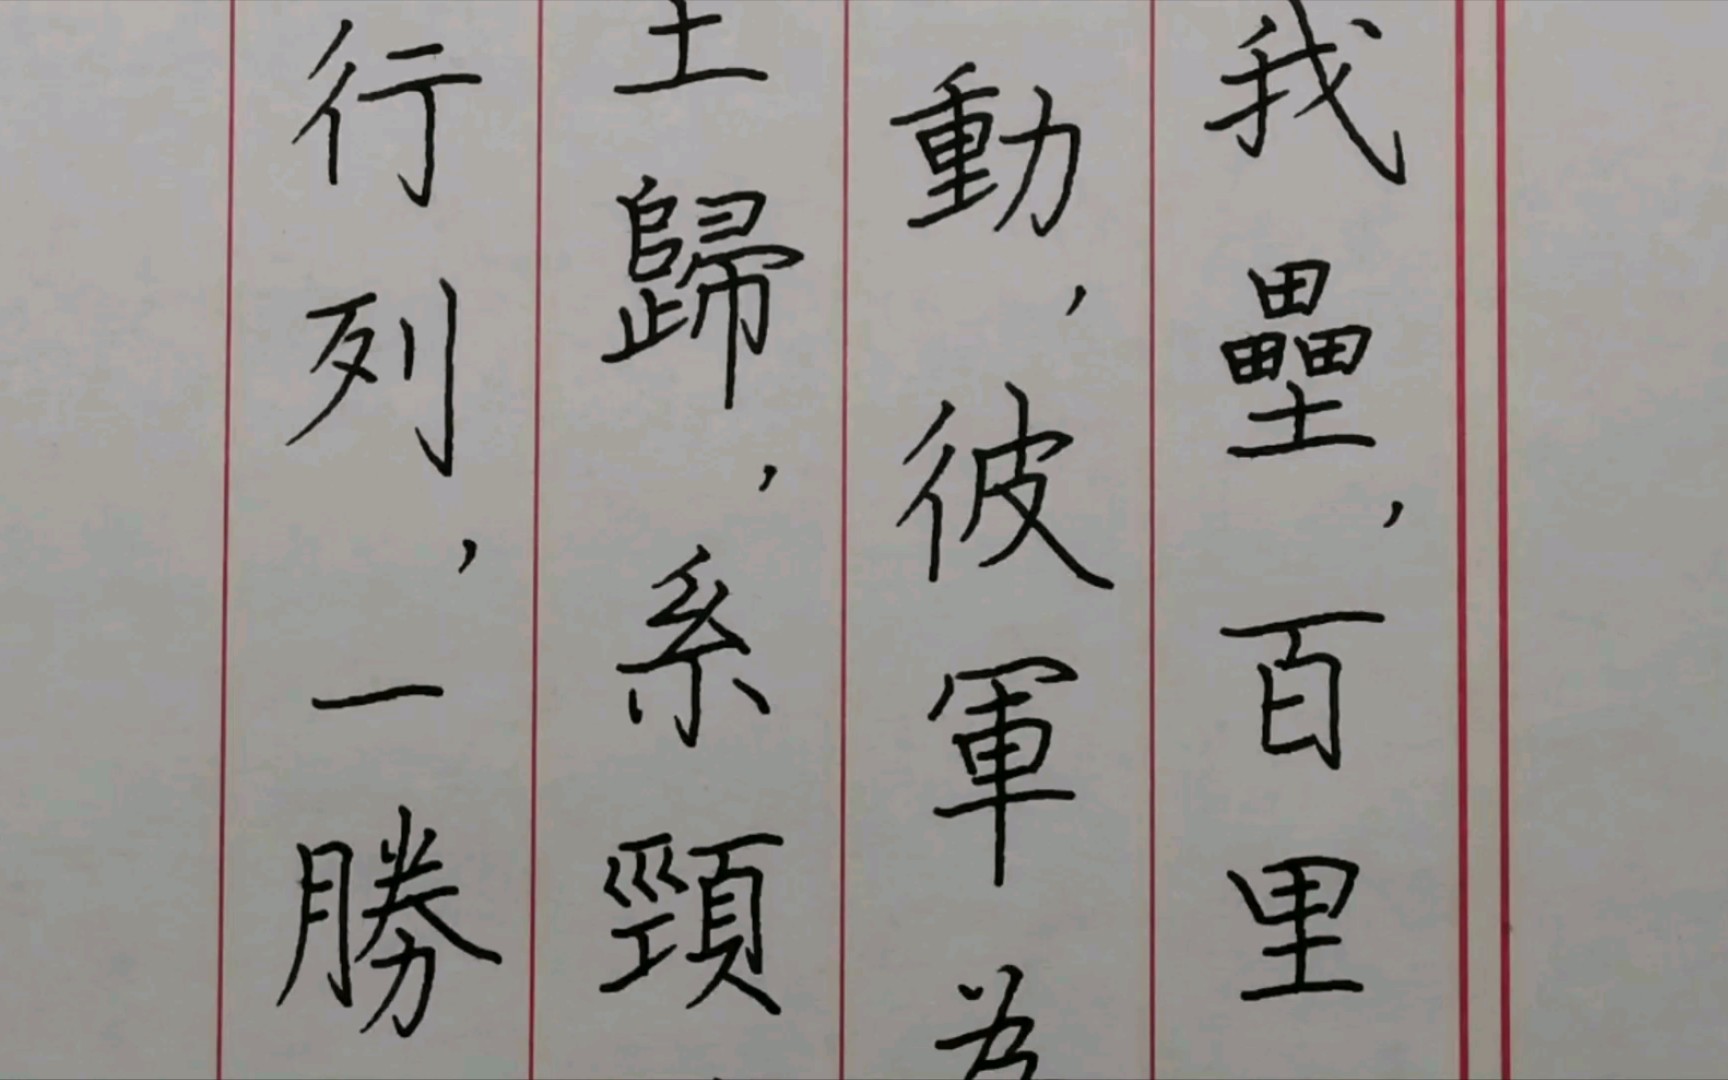 我壘，百里
動，彼軍為
土歸，系頸
行列，一勝